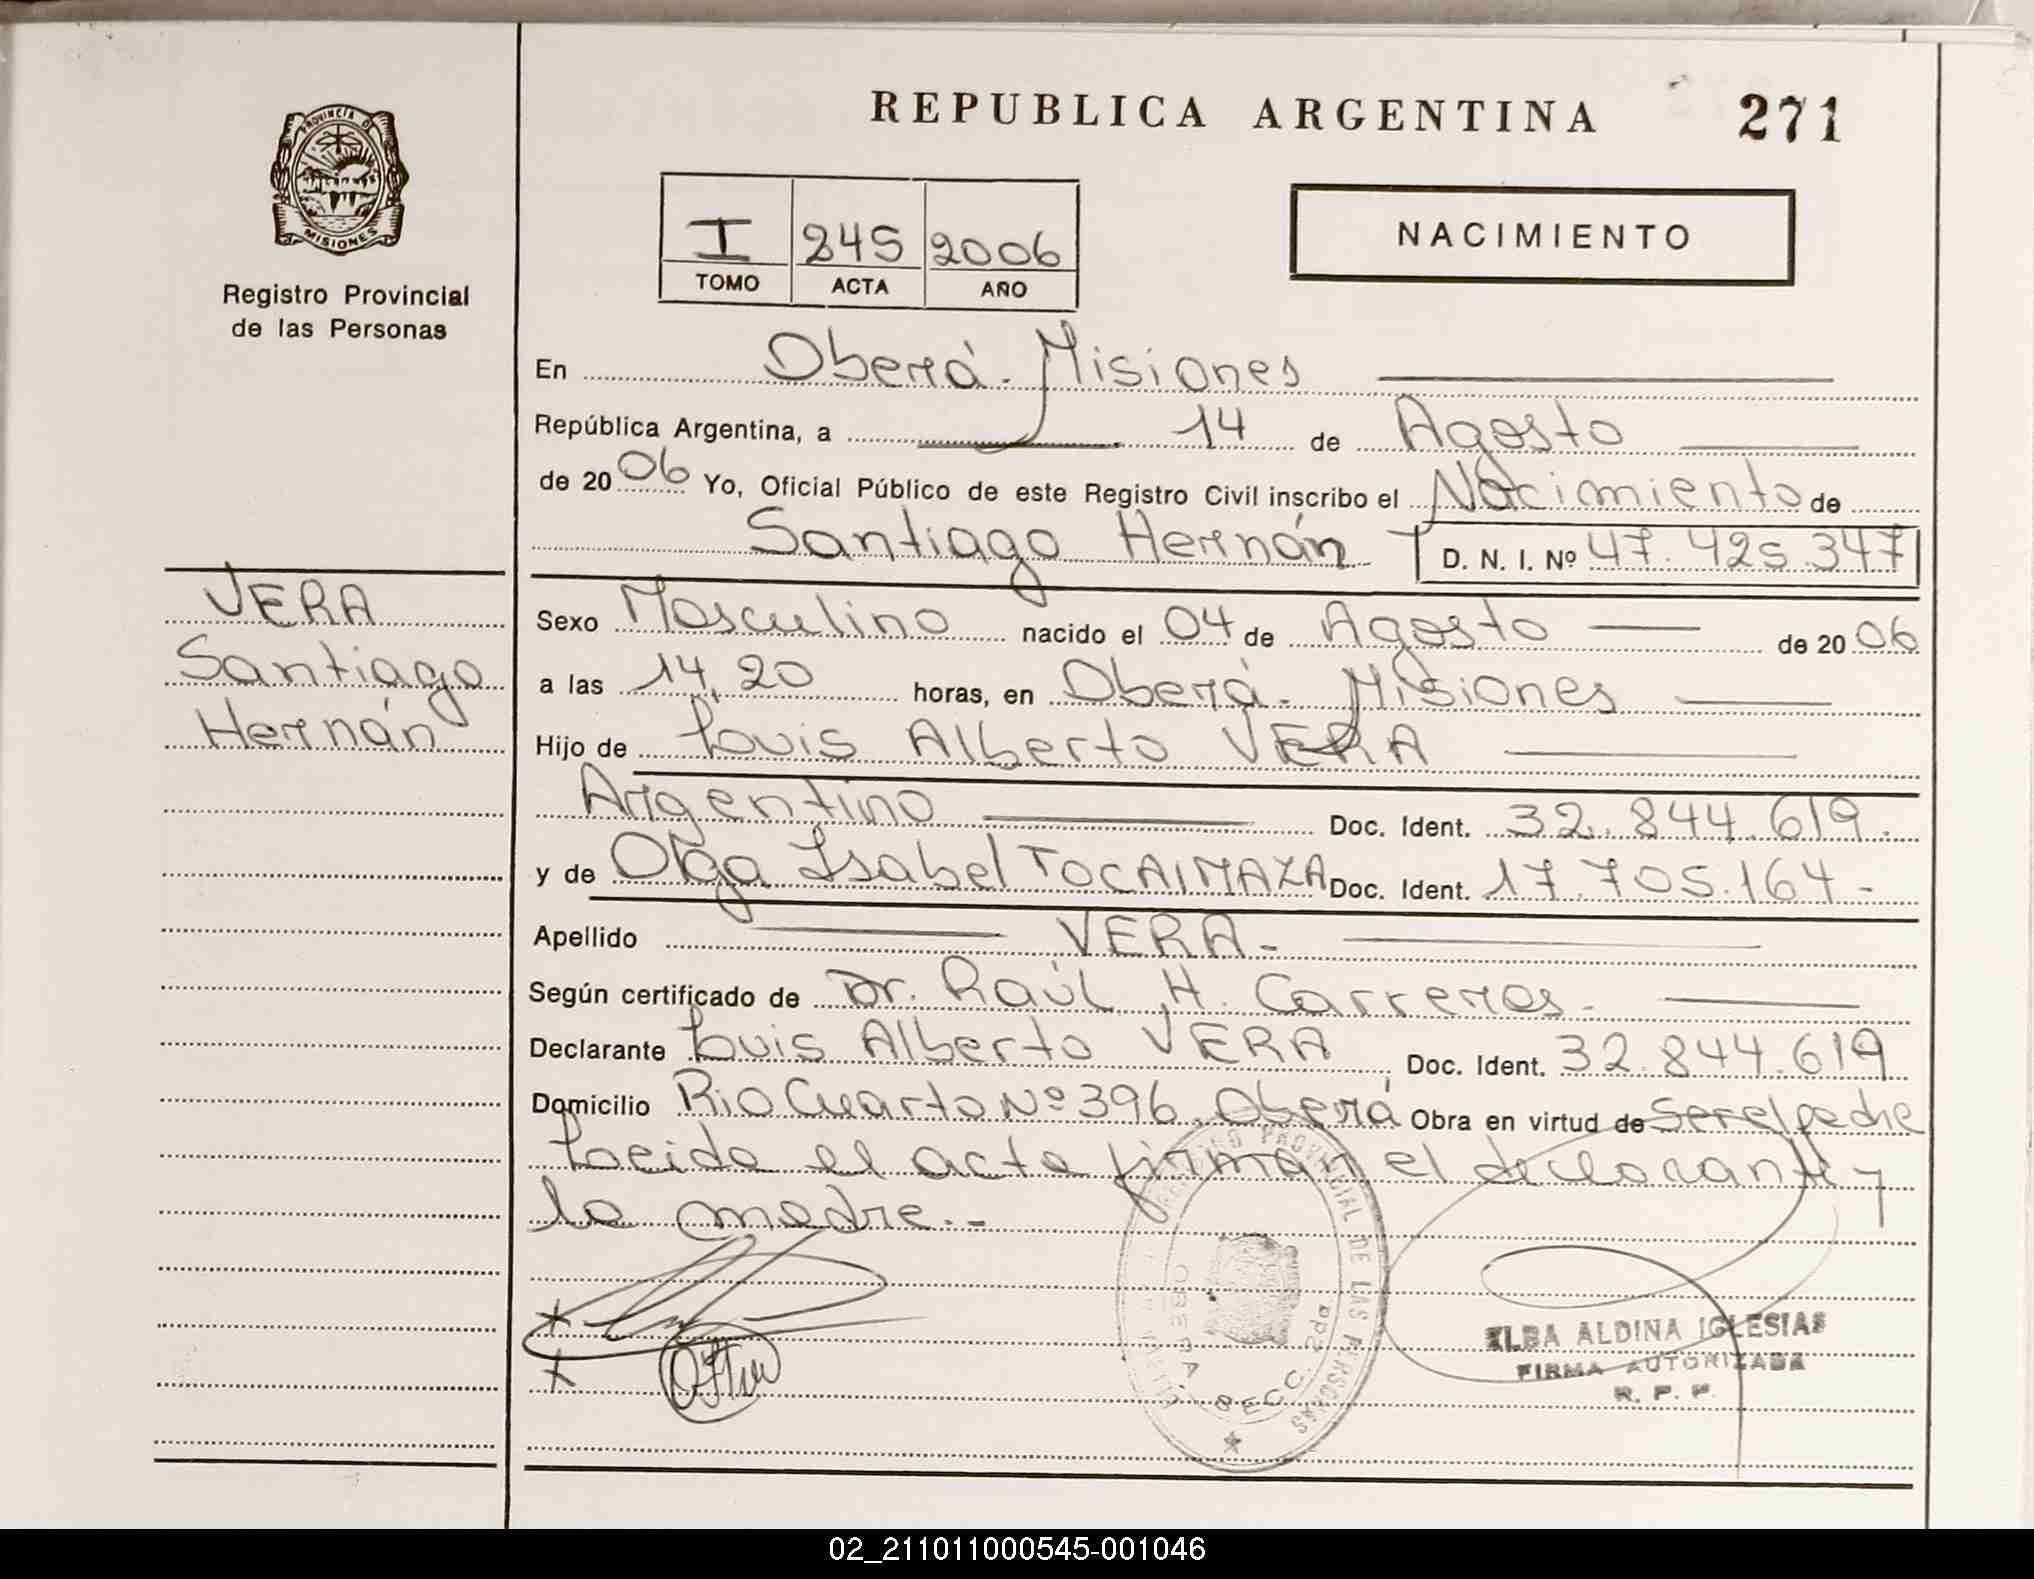 REPUBLICA ARGENTINA
271
PROVINCIA DE
MISIONES
Registro Provincial
de las Personas
I 245 2006
TOMO ACTA AÑO
NACIMIENTO
En Oberá - Misiones
República Argentina, a 14 de Agosto
de 2006 Yo, Oficial Público de este Registro Civil inscribo el Nacimiento de
Santiago Hernán D. N. I. Nº 47.425.347
VERA
Santiago
Hernán
Sexo Masculino nacido el 04 de Agosto de 2006
a las 14,20 horas, en Oberá - Misiones
Hijo de Luis Alberto VERA
Argentino Doc. Ident. 32.844.619.
y de Olga Isabel TOCAIMAZA Doc. Ident. 17.705.164-
Apellido VERA-
Según certificado de Dr. Raúl H. Carreras-
Declarante Luis Alberto VERA Doc. Ident. 32.844.619
Domicilio Rio Cuarto Nº 396, Oberá Obra en virtud de Ser el padre
Leida el acta firman el declarante y
la madre.-
REGISTRO PROVINCIAL DE LAS PERSONAS
OBERA
SECC.
ELBA ALDINA IGLESIAS
FIRMA AUTORIZADA
R. P. P.
02_211011000545-001046